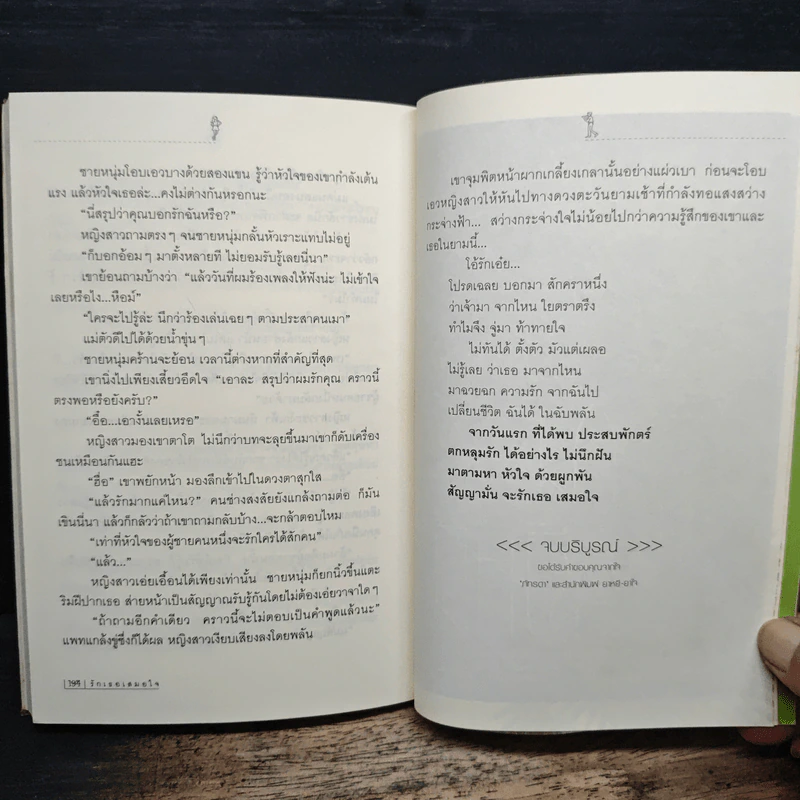 ชายหนุ่มโอบเอวบางด้วยสองแขน รู้ว่าหัวใจของเขากำลังเต้น
แรง แล้วหัวใจเธอล่ะ...คงไม่ต่างกันหรอกนะ
“นี่สรุปว่าคุณบอกรักฉันหรือ?”
หญิงสาวถามตรงๆ จนชายหนุ่มกลั้นหัวเราะแทบไม่อยู่
“ก็บอกอ้อมๆ มาตั้งหลายที ไม่ยอมรับรู้เลยนี่นา”
เขาย้อนถามบ้างว่า “แล้ววันที่ผมร้องเพลงให้ฟังน่ะ ไม่เข้าใจ
เลยหรือไง...หือม์”
“ใครจะไปรู้ล่ะ นึกว่าร้องเล่นเฉยๆ ตามประสาคนเมา”
แม่ตัวดีไปได้ด้วยน้ำขุ่นๆ
ชายหนุ่มคร้านจะย้อน เวลานี้ต่างหากที่สำคัญที่สุด
เขานิ่งไปเพียงเสี้ยวอึดใจ “เอาละ สรุปว่าผมรักคุณ คราวนี้
ตรงพอหรือยังครับ?”
“อื้อ...เอางั้นเลยเหรอ”
หญิงสาวมองเขาตาโต ไม่นึกว่าบทจะลุยขึ้นมาเขาก็ดับเครื่อง
ชนเหมือนกันแฮะ
“อื้อ” เขาพยักหน้า มองลึกเข้าไปในดวงตาสุกใส
“แล้วรักมากแค่ไหน?” คนช่างสงสัยยังแกล้งถามต่อ ก็มัน
เขินนี่นา แล้วก็กลัวว่าถ้าเขาถามกลับบ้าง...จะกล้าตอบไหม
“เท่าที่หัวใจของผู้ชายคนหนึ่งจะรักใครได้สักคน”
“แล้ว...”
หญิงสาวเอ่ยเอื้อนได้เพียงเท่านั้น ชายหนุ่มก็ยกนิ้วขึ้นแตะ
ริมฝีปากเธอ ส่ายหน้าเป็นสัญญาณรับรู้กันโดยไม่ต้องเอ่ยวาจาใดๆ
“ถ้าถามอีกคำเดียว คราวนี้จะไม่ตอบเป็นคำพูดแล้วนะ”
แพทแกล้งขู่ซึ่งก็ได้ผล หญิงสาวเงียบเสียงลงโดยพลัน
| 194 | รักเธอเสมอใจ
เขาจุมพิตหน้าผากเกลี้ยงเกลานั้นอย่างแผ่วเบา ก่อนจะโอบ
เอวหญิงสาวให้หันไปทางดวงตะวันยามเช้าที่กำลังทอแสงสว่าง
กระจ่างฟ้า... สว่างกระจ่างใจไม่น้อยไปกว่าความรู้สึกของเขาและ
เธอในยามนี้...
โอ้รักเอ๋ย...
โปรดเฉลย บอกมา สักคราหนึ่ง
ว่าเจ้ามา จากไหน ใยตราตรึง
ทำไมจึง จู่มา ท้าทายใจ
ไม่ทันได้ ตั้งตัว มัวแต่เผลอ
ไม่รู้เลย ว่าเธอ มาจากไหน
มาฉวยฉก ความรัก จากฉันไป
เปลี่ยนชีวิต ฉันได้ ในฉับพลัน
จากวันแรก ที่ได้พบ ประสบพักตร์
ตกหลุมรัก ได้อย่างไร ไม่นึกฝัน
มาตามหา หัวใจ ด้วยผูกพัน
สัญญามั่น จะรักเธอ เสมอใจ
<<< จบบริบูรณ์ >>>
ขอได้รับคำขอบคุณจากใจ
'ภัทรดา' และสำนักพิมพ์ ยาหยี-ยาใจ